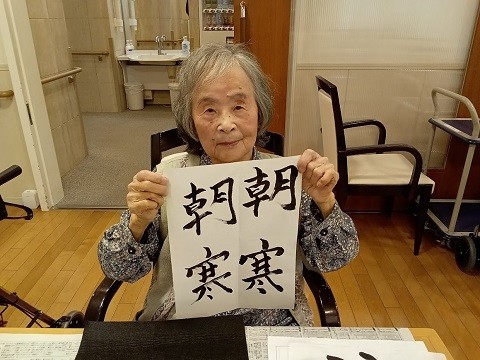 朝寒
朝寒